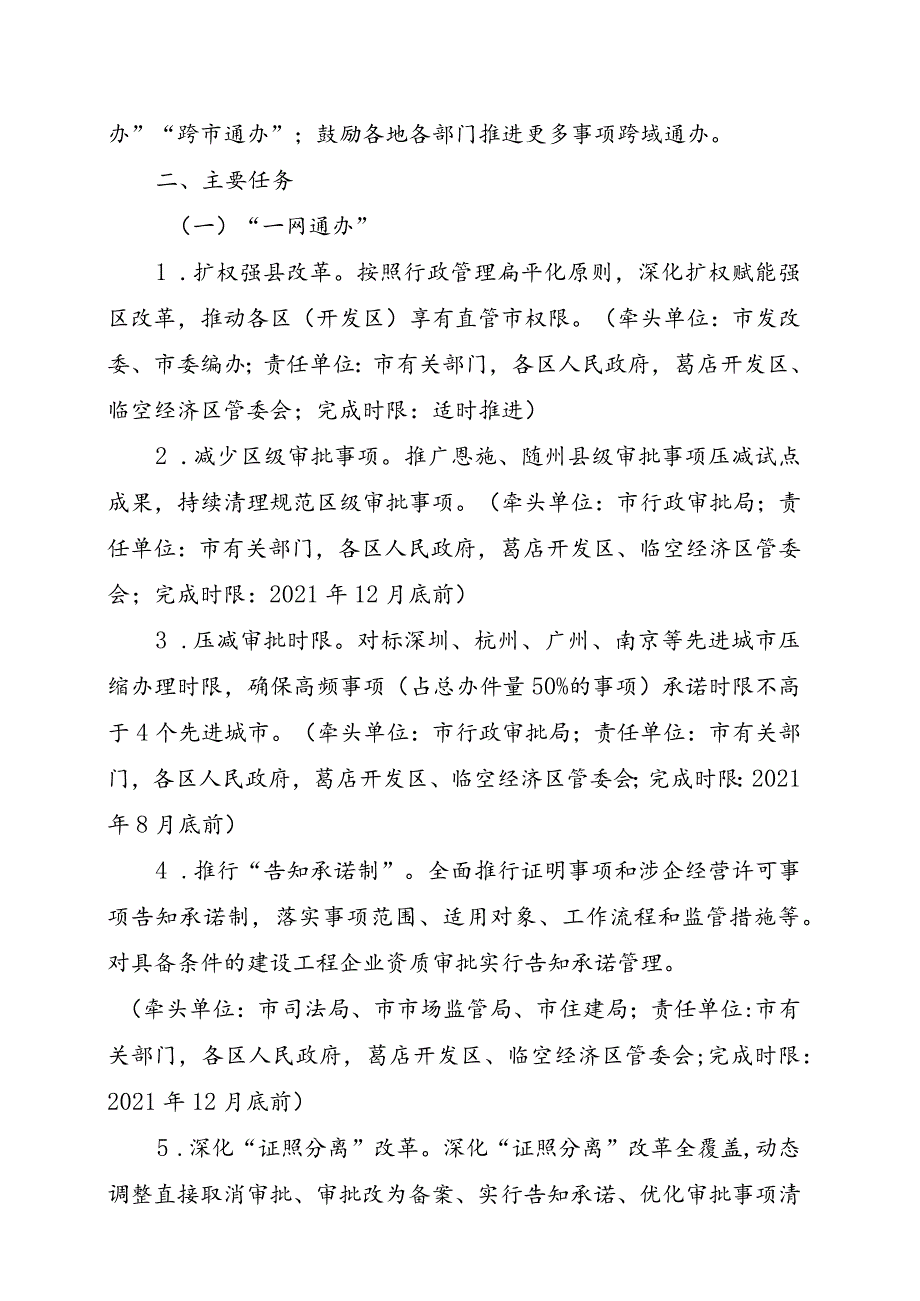 办”“跨市通办”；鼓励各地各部门推进更多事项跨域通办。
二、主要任务
（一）“一网通办”
1 .扩权强县改革。按照行政管理扁平化原则，深化扩权赋能强
区改革，推动各区（开发区）享有直管市权限。（牵头单位：市发改
委、市委编办；责任单位：市有关部门，各区人民政府，葛店开发区、
临空经济区管委会；完成时限：适时推进）
2 .减少区级审批事项。推广恩施、随州县级审批事项压减试点
成果，持续清理规范区级审批事项。（牵头单位：市行政审批局；责
任单位：市有关部门，各区人民政府，葛店开发区、临空经济区管委
会；完成时限：2021 年 12 月底前）
3 .压减审批时限。对标深圳、杭州、广州、南京等先进城市压
缩办理时限，确保高频事项（占总办件量 50%的事项）承诺时限不高
于 4 个先进城市。（牵头单位：市行政审批局；责任单位：市有关部
门，各区人民政府，葛店开发区、临空经济区管委会；完成时限：2021
年 8 月底前）
4 .推行“告知承诺制”。全面推行证明事项和涉企经营许可事
项告知承诺制，落实事项范围、适用对象、工作流程和监管措施等。
对具备条件的建设工程企业资质审批实行告知承诺管理。
（牵头单位：市司法局、市市场监管局、市住建局；责任单位:市有
关部门，各区人民政府，葛店开发区、临空经济区管委会;完成时限：
2021 年 12 月底前）
5 .深化“证照分离”改革。深化“证照分离”改革全覆盖,动态
调整直接取消审批、审批改为备案、实行告知承诺、优化审批事项清